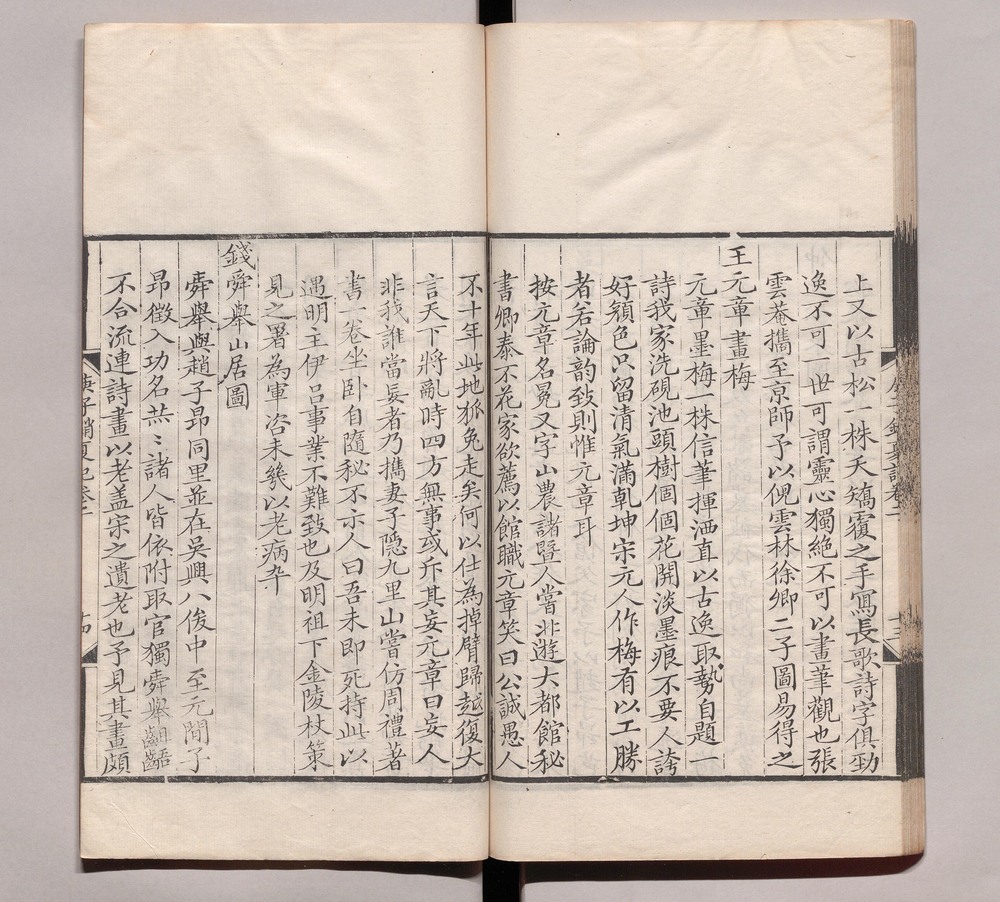 上又以古松一株天矯覆之手寫長歌詩字俱勁
逸不可一世可謂靈心獨絶不可以畫筆觀也張
雲菴攜至京師予以倪雲林徐卿二子圖易得之
王元章畫梅
元章墨梅一株信筆揮洒直以古逸取勢自題一
詩我家洗硯池頭樹個個花開淡墨痕不要人誇
好顏色只留清氣滿乹坤宋元人作梅有以工勝
者若論韵致則惟元章耳
按元章名冕又字山農諸暨人嘗北遊大都館秘
書卿泰不花家欲薦以館職元章笑曰公誠愚人
不十年此地狐兔走矣何以仕為掉臂歸越復大
言天下將亂時四方無事或斥其妄元章曰妄人
非我誰當妄者乃攜妻子隱九里山嘗仿周禮著
書一卷坐卧自隨秘不示人曰吾未即死持此以
遇明主伊呂事業不難致也及明祖下金陵杖策
見之署為軍咨未幾以老病卒
錢舜舉山居圖
舜舉與趙子昂同里並在吳興八俊中至元間子
昂徵入功名㷼〻諸人皆依附取官獨舜舉齟齬
不合流連詩畫以老盖宋之遺老也予見其畫頗
庚子銷夏記卷二
十四